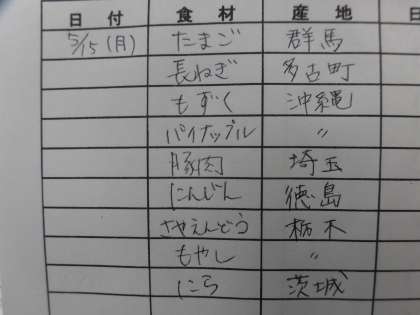 日付 食材 産地 日
5/15(月) たまご 群馬
長ねぎ 多古町
もずく 沖縄
パイナップル 〃
豚肉 埼玉
にんじん 徳島
さやえんどう 栃木
もやし 〃
にら 茨城